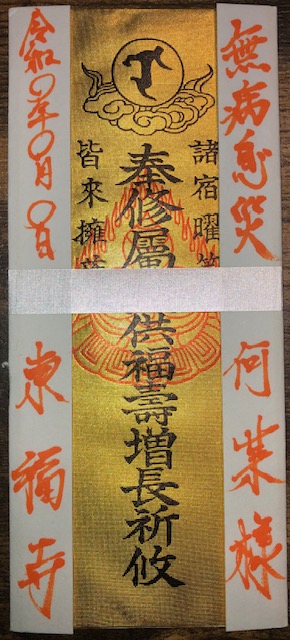 無病息災 何某様
諸宿曜
奉修屬 供福壽増長祈攸
皆來擁
令和〇年〇月〇日 東福寺